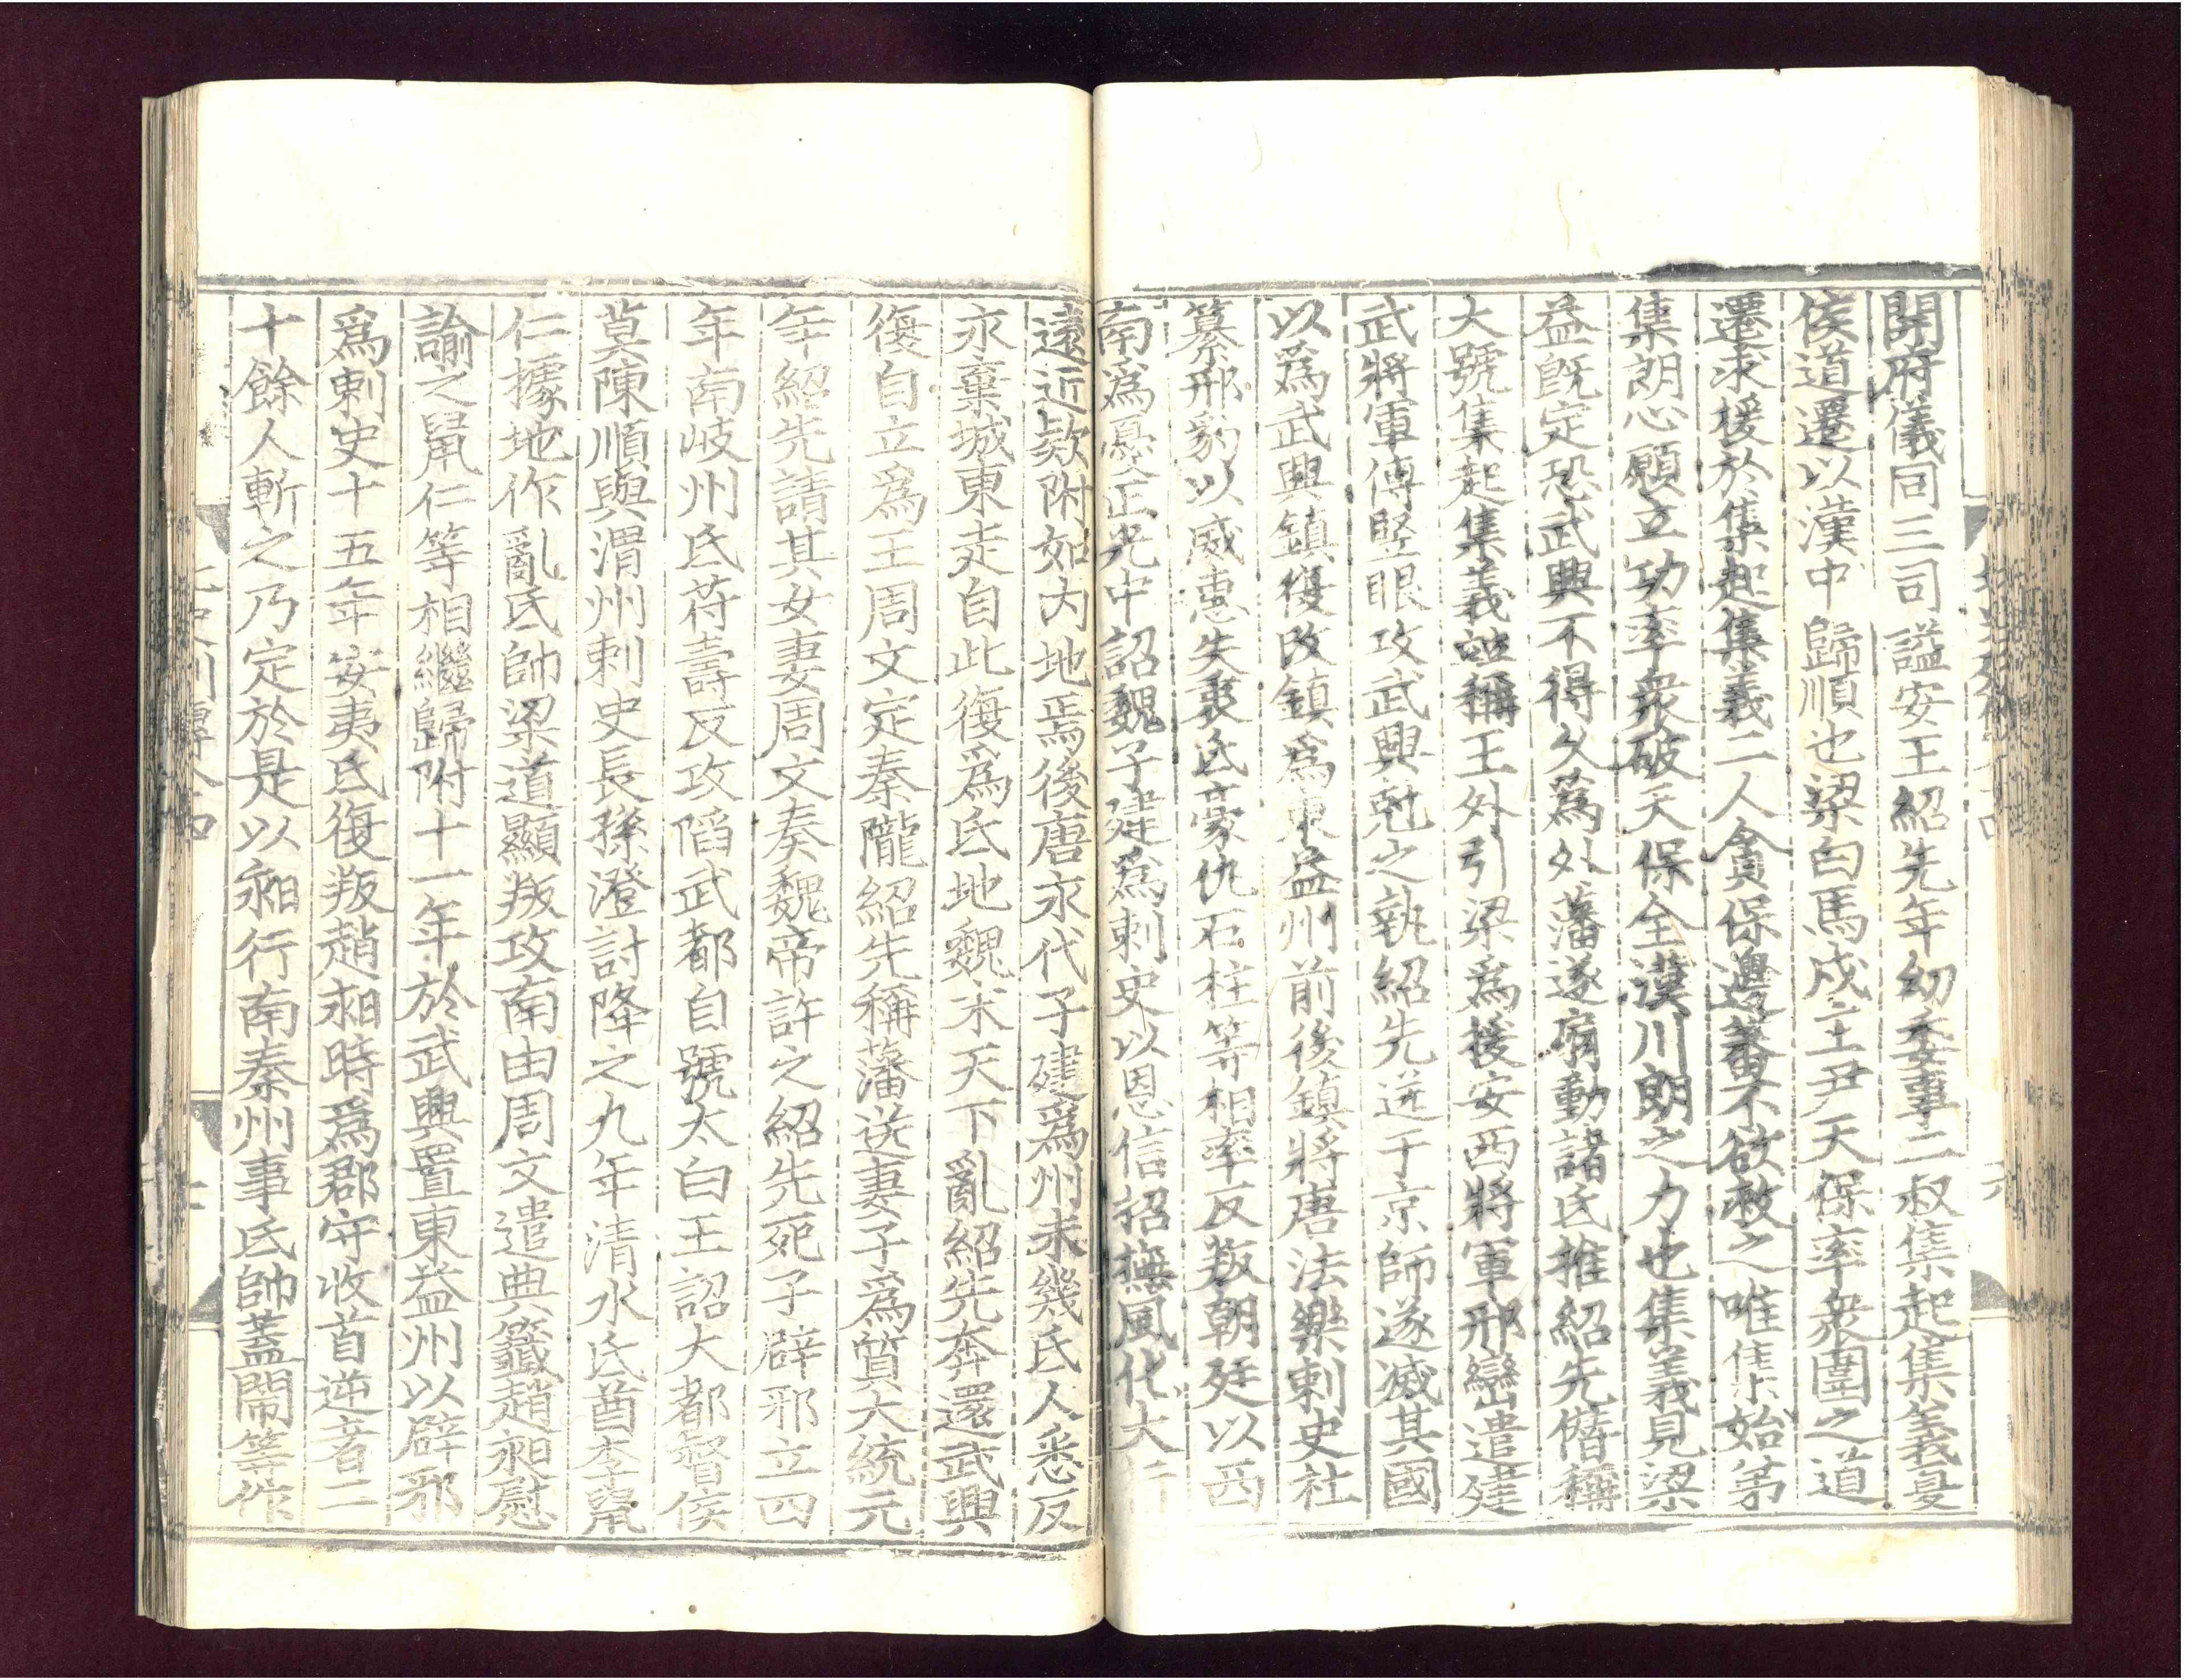 開府儀同三司謚安王紹先年幼委事二叔集起集義夏
侯道遷以漢中歸順也梁白馬戍主尹天保率衆圍之道
遷求援於集起集義二人貪保邊蕃不欲救之唯集始弟
集朗心願立功率衆破天保全漢川朗之力也集義見梁
益既定恐武興不得久爲外藩遂扇動諸氐推紹先僭稱
大號集起集義並稱王外引梁爲援安西將軍邢巒遣建
武將軍傅竪眼攻武興剋之執紹先送于京師遂滅其國
以爲武興鎮復改鎮爲東益州前後鎮將唐法樂刺史杜
纂邢豹以威惠失衷氐豪仇石柱等相率反叛朝廷以西
南爲憂正光中詔魏子建爲刺史以恩信招撫風化大行
遠近款附如内地焉後唐永代子建爲州未幾氐人悉反
永棄城東走自此復爲氐地魏末天下亂紹先奔還武興
復自立爲王周文定秦隴紹先稱藩送妻子爲質大統元
年紹先請其女妻周文奏魏帝許之紹先死子辟邪立四
年南岐州氐苻壽反攻陷武都自號太白王詔大都督侯
莫陳順與渭州刺史長孫澄討降之九年清水氐酋李鼠
仁據地作亂氐帥梁道顯叛攻南由周文遣典籤趙昶慰
諭之鼠仁等相繼歸附十一年於武興置東益州以辟邪
爲刺史十五年安夷氐復叛趙昶時爲郡守收首逆者二
十餘人斬之乃定於是以昶行南秦州事氐帥蓋鬧等作